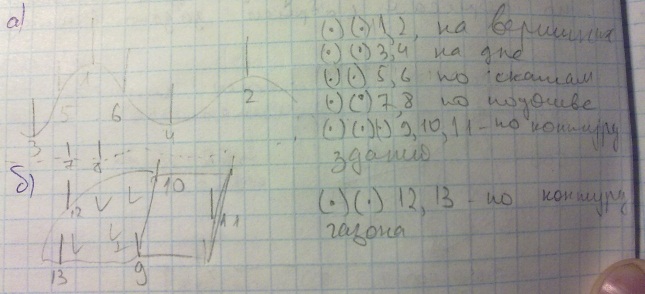 а)
(·)(·)1,2, на вершинах
(·)(·)3,4 на дне
(·)(·) 5,6 по скатам
(·)(·) 7,8 по подошве
(·)(·)(·) 9,10,11-по контуру
здания
(·)(·) 12, 13 - по контуру
газона
1
5
6
2
3
4
7
8
б)
10
12
11
13
9